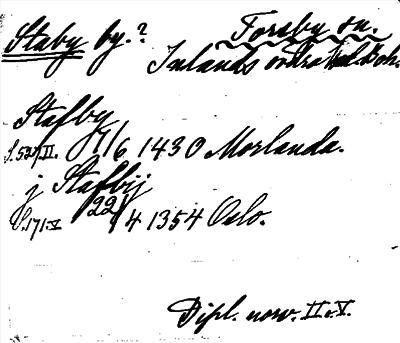 Staby by.? Forsby sn.
Inlands Nordre hd. Boh.
Stafby
S.527.II. 7/6 1430 Morlanda.
j Stafbij
S.171.V 22/4 1354 Oslo.
Dipl. norv. II o. V.